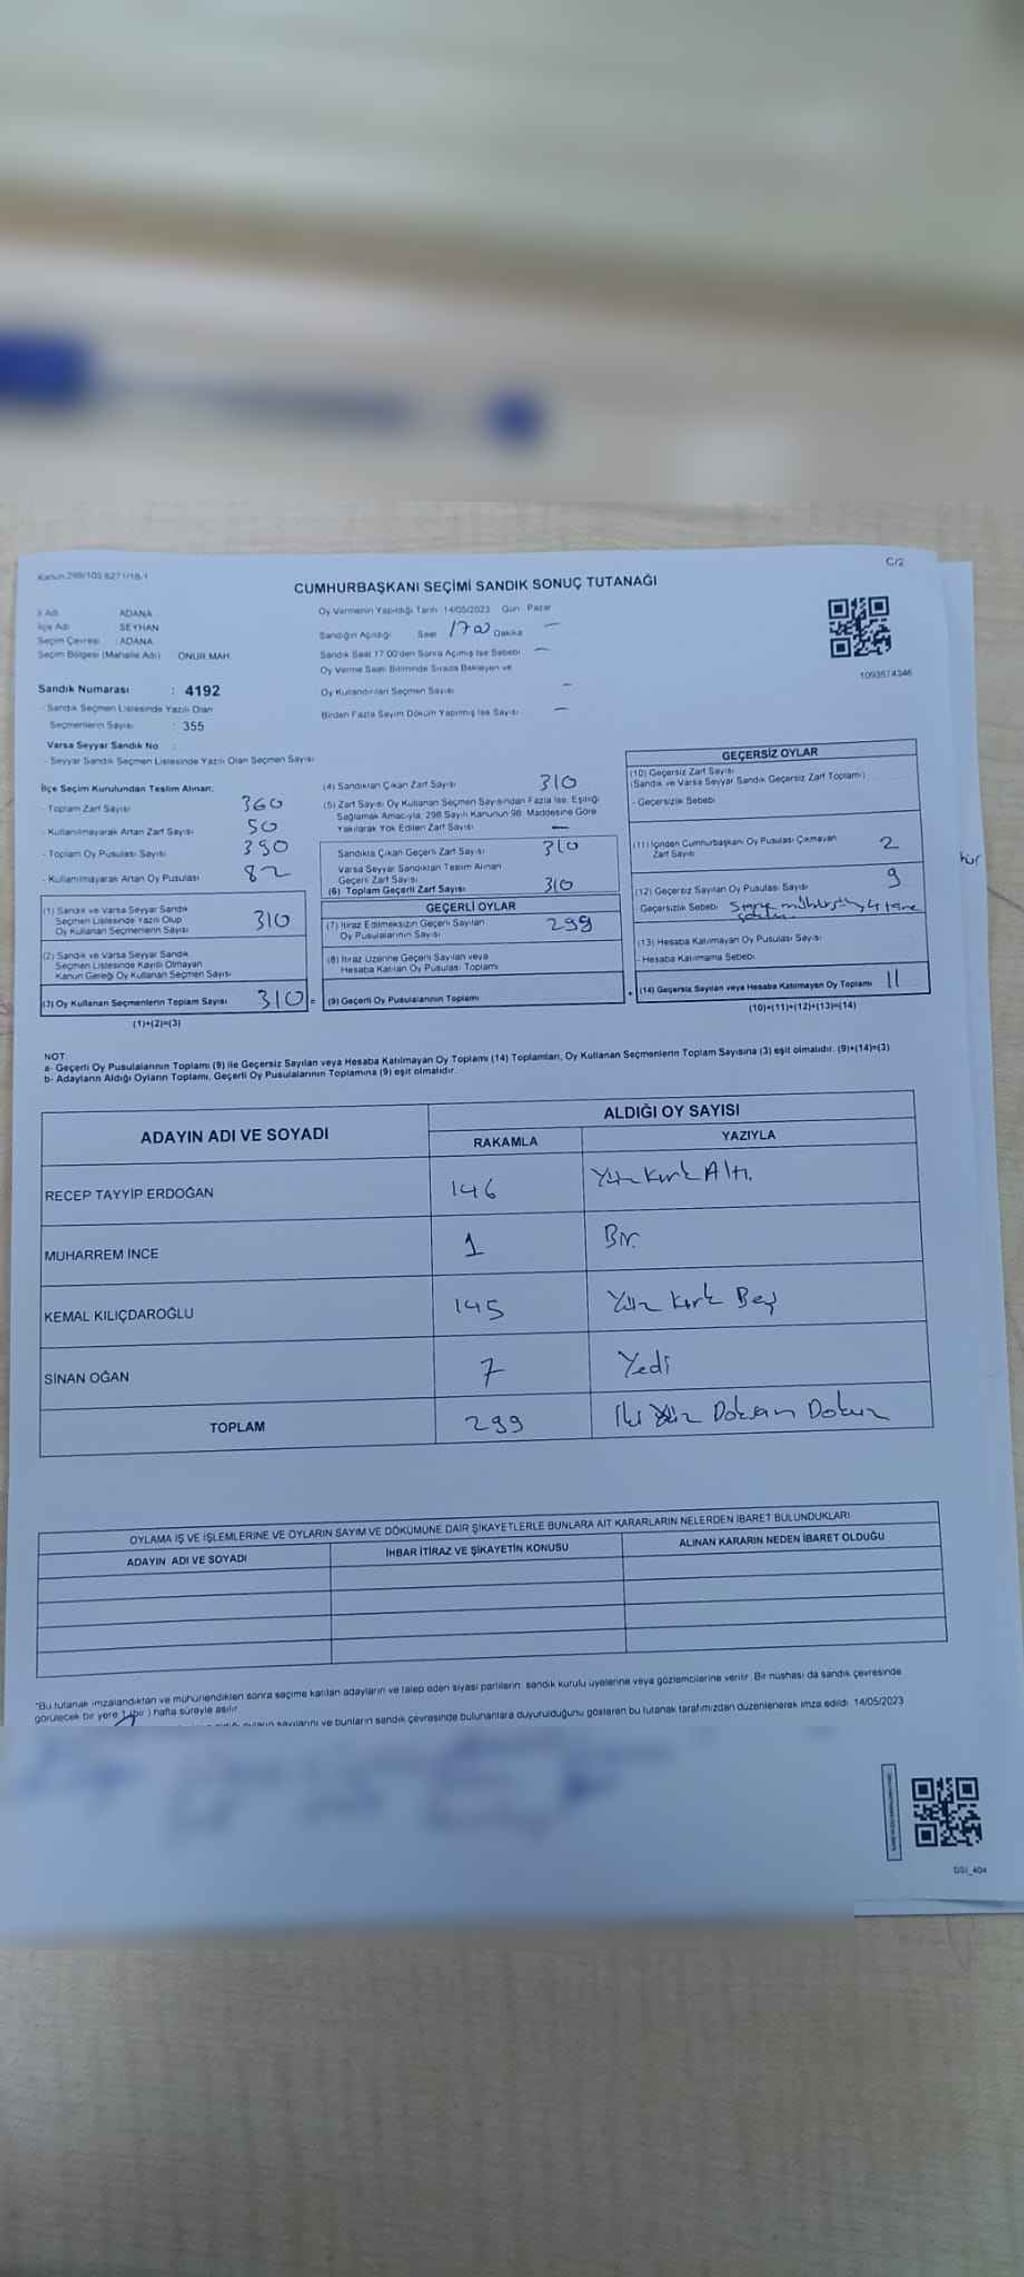 Kanun 298/105 6271/18-1
C/2
CUMHURBAŞKANI SEÇİMİ SANDIK SONUÇ TUTANAĞI
İl Adı ADANA
İlçe Adı SEYHAN
Seçim Çevresi : ADANA
Seçim Bölgesi (Mahalle Adı) ONUR MAH.
Oy Vermenin Yapıldığı Tarih 14/05/2023 Gün Pazar
Sandığın Açıldığı Saat 1700 Dakika —
Sandık Saat 17:00'den Sonra Açılmış İse Sebebi —
Oy Verme Saati Bitiminde Sırada Bekleyen ve
Oy Kullandırılan Seçmen Sayısı —
Birden Fazla Sayım Döküm Yapılmış İse Sayısı —
1093574346
Sandık Numarası : 4192
- Sandık Seçmen Listesinde Yazılı Olan
Seçmenlerin Sayısı : 355
Varsa Seyyar Sandık No :
- Seyyar Sandık Seçmen Listesinde Yazılı Olan Seçmen Sayısı
İlçe Seçim Kurulundan Teslim Alınan;
- Toplam Zarf Sayısı 360
- Kullanılmayarak Artan Zarf Sayısı 50
- Toplam Oy Pusulası Sayısı 390
- Kullanılmayarak Artan Oy Pusulası 82
(1) Sandık ve Varsa Seyyar Sandık
Seçmen Listesinde Yazılı Olup
Oy Kullanan Seçmenlerin Sayısı 310
(2) Sandık ve Varsa Seyyar Sandık
Seçmen Listesinde Kayıtlı Olmayan
Kanun Gereği Oy Kullanan Seçmen Sayısı
(3) Oy Kullanan Seçmenlerin Toplam Sayısı 310 =
(1)+(2)=(3)
(4) Sandıktan Çıkan Zarf Sayısı 310
(5) Zarf Sayısı Oy Kullanan Seçmen Sayısından Fazla İse, Eşitliği
Sağlamak Amacıyla, 298 Sayılı Kanunun 98. Maddesine Göre
Yakılarak Yok Edilen Zarf Sayısı —
Sandıkta Çıkan Geçerli Zarf Sayısı 310
Varsa Seyyar Sandıktan Teslim Alınan
Geçerli Zarf Sayısı
(6) Toplam Geçerli Zarf Sayısı 310
GEÇERLİ OYLAR
(7) İtiraz Edilmeksizin Geçerli Sayılan
Oy Pusulalarının Sayısı 299
(8) İtiraz Üzerine Geçerli Sayılan veya
Hesaba Katılan Oy Pusulası Toplamı
(9) Geçerli Oy Pusulalarının Toplamı +
GEÇERSİZ OYLAR
(10) Geçersiz Zarf Sayısı
(Sandık ve Varsa Seyyar Sandık Geçersiz Zarf Toplamı)
- Geçersizlik Sebebi
(11) İçinden Cumhurbaşkanı Oy Pusulası Çıkmayan
Zarf Sayısı 2
(12) Geçersiz Sayılan Oy Pusulası Sayısı 9
Geçersizlik Sebebi
(13) Hesaba Katılmayan Oy Pusulası Sayısı
- Hesaba Katılmama Sebebi
(14) Geçersiz Sayılan veya Hesaba Katılmayan Oy Toplamı 11
(10)+(11)+(12)+(13)=(14)
NOT:
a- Geçerli Oy Pusulalarının Toplamı (9) ile Geçersiz Sayılan veya Hesaba Katılmayan Oy Toplamı (14) Toplamları, Oy Kullanan Seçmenlerin Toplam Sayısına (3) eşit olmalıdır. (9)+(14)=(3)
b- Adayların Aldığı Oyların Toplamı, Geçerli Oy Pusulalarının Toplamına (9) eşit olmalıdır.
ADAYIN ADI VE SOYADI
ALDIĞI OY SAYISI
RAKAMLA YAZIYLA
RECEP TAYYİP ERDOĞAN 146 Yüz Kırk Altı.
MUHARREM İNCE 1 Bir.
KEMAL KILIÇDAROĞLU 145 Yüz Kırk Beş
SİNAN OĞAN 7 Yedi
TOPLAM 299 İki Yüz Doksan Dokuz
OYLAMA İŞ VE İŞLEMLERİNE VE OYLARIN SAYIM VE DÖKÜMÜNE DAİR ŞİKAYETLERLE BUNLARA AİT KARARLARIN NELERDEN İBARET BULUNDUKLARI
ADAYIN ADI VE SOYADI İHBAR İTİRAZ VE ŞİKAYETİN KONUSU ALINAN KARARIN NEDEN İBARET OLDUĞU
*Bu tutanak imzalandıktan ve mühürlendikten sonra seçime katılan adayların ve talep eden siyasi partilerin sandık kurulu üyelerine veya gözlemcilerine verilir. Bir nüshası da sandık çevresinde
görülecek bir yere 1 (bir) hafta süreyle asılır.
sayılarını ve bunların sandık çevresinde bulunanlara duyurulduğunu gösteren bu tutanak tarafımızdan düzenlenerek imza edildi. 14/05/2023
DSI_404